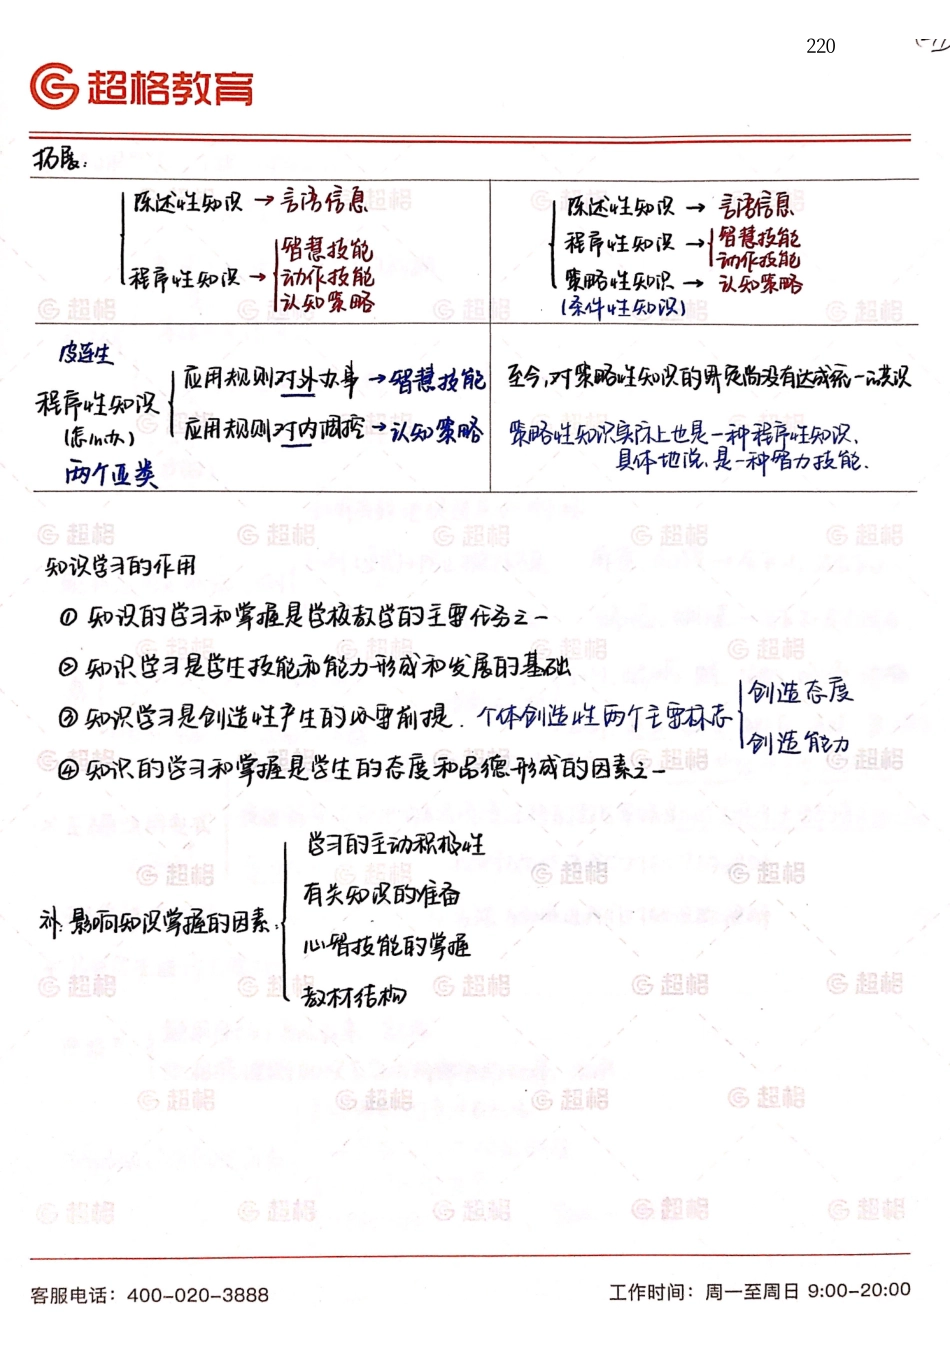 220
超格教育
拓展：
陈述性知识 → 言语信息
程序性知识 → 智慧技能
动作技能
认知策略
陈述性知识 → 言语信息
程序性知识 → 智慧技能
动作技能
策略性知识 → 认知策略
(条件性知识)
皮连生
程序性知识
(怎么办)
两个亚类
应用规则对外办事 → 智慧技能
应用规则对内调控 → 认知策略
至今,对策略性知识的界定尚没有达成统一共识
策略性知识实际上也是一种程序性知识,
具体地说,是一种智力技能.
知识学习的作用
① 知识的学习和掌握是学校教学的主要任务之一
② 知识学习是学生技能和能力形成和发展的基础
③ 知识学习是创造性产生的必要前提. 个体创造性两个主要标志
创造态度
创造能力
④ 知识的学习和掌握是学生的态度和品德形成的因素之一
补:影响知识掌握的因素:
学习的主动积极性
有关知识的准备
心智技能的掌握
教材结构
客服电话：400-020-3888
工作时间：周一至周日 9:00-20:00